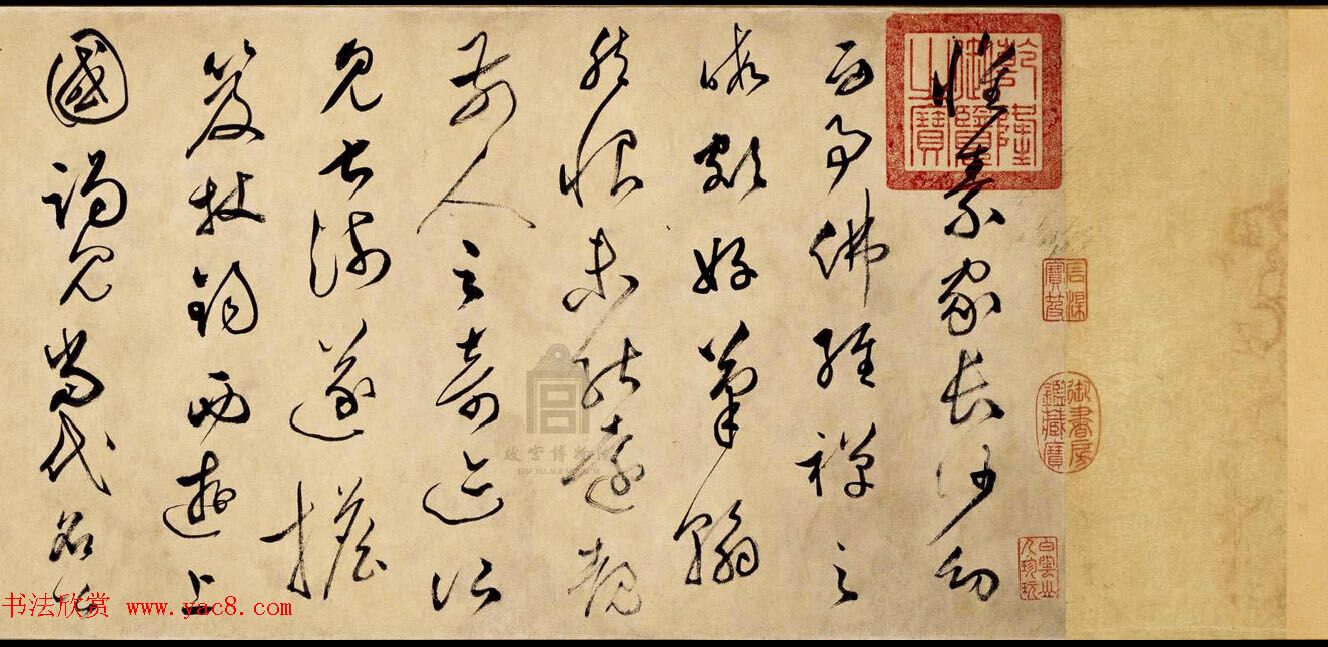 乾隆御覽之寶
御書房鑑藏寶
懷素家長沙幼
而事佛經禪之
暇頗好筆翰
然恨未能遠覩
前人之奇迹所
見甚淺遂擔
笈杖錫西遊上
國謁見當代名公
故宫博物院
THE PALACE MUSEUM
书法欣赏 www.yac8.com